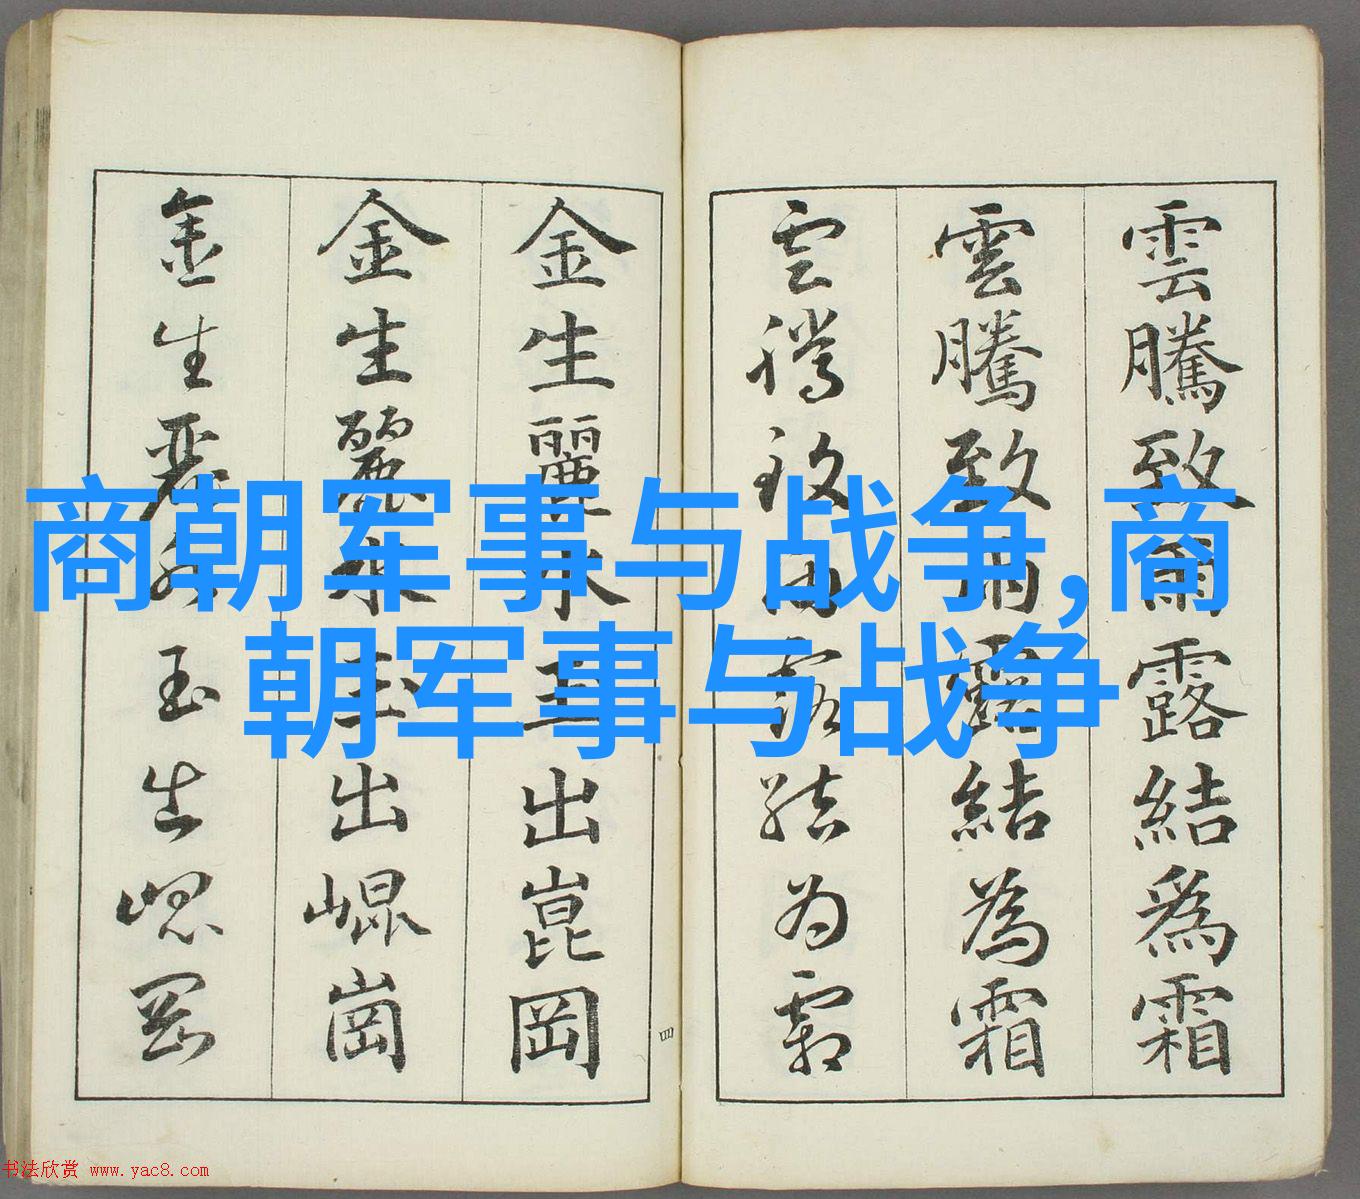 雲騰致雨露結爲霜
雲騰致雨露結為霜
雲騰致雨露結为霜
四
金生麗水玉出崑岡
金生麗水玉出崐崗
金生麗水玉出崐岡
商朝军事与战争,商
朝军事与战争
书法欣赏 www.yac8.com